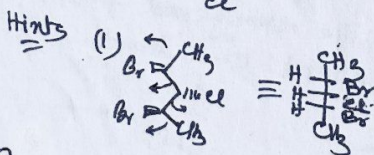 cl
Hints (1)
CH3
Br
Cl
Br
CH3
≡
CH3
H Br
H Cl
H Br
CH3